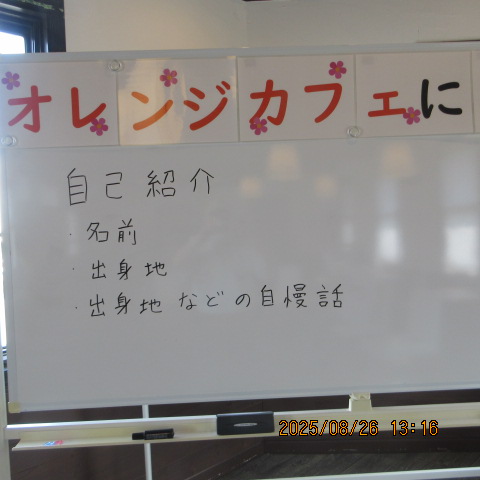 オレンジカフェに
自己紹介
・名前
・出身地
・出身地などの自慢話
2025/08/26 13:16